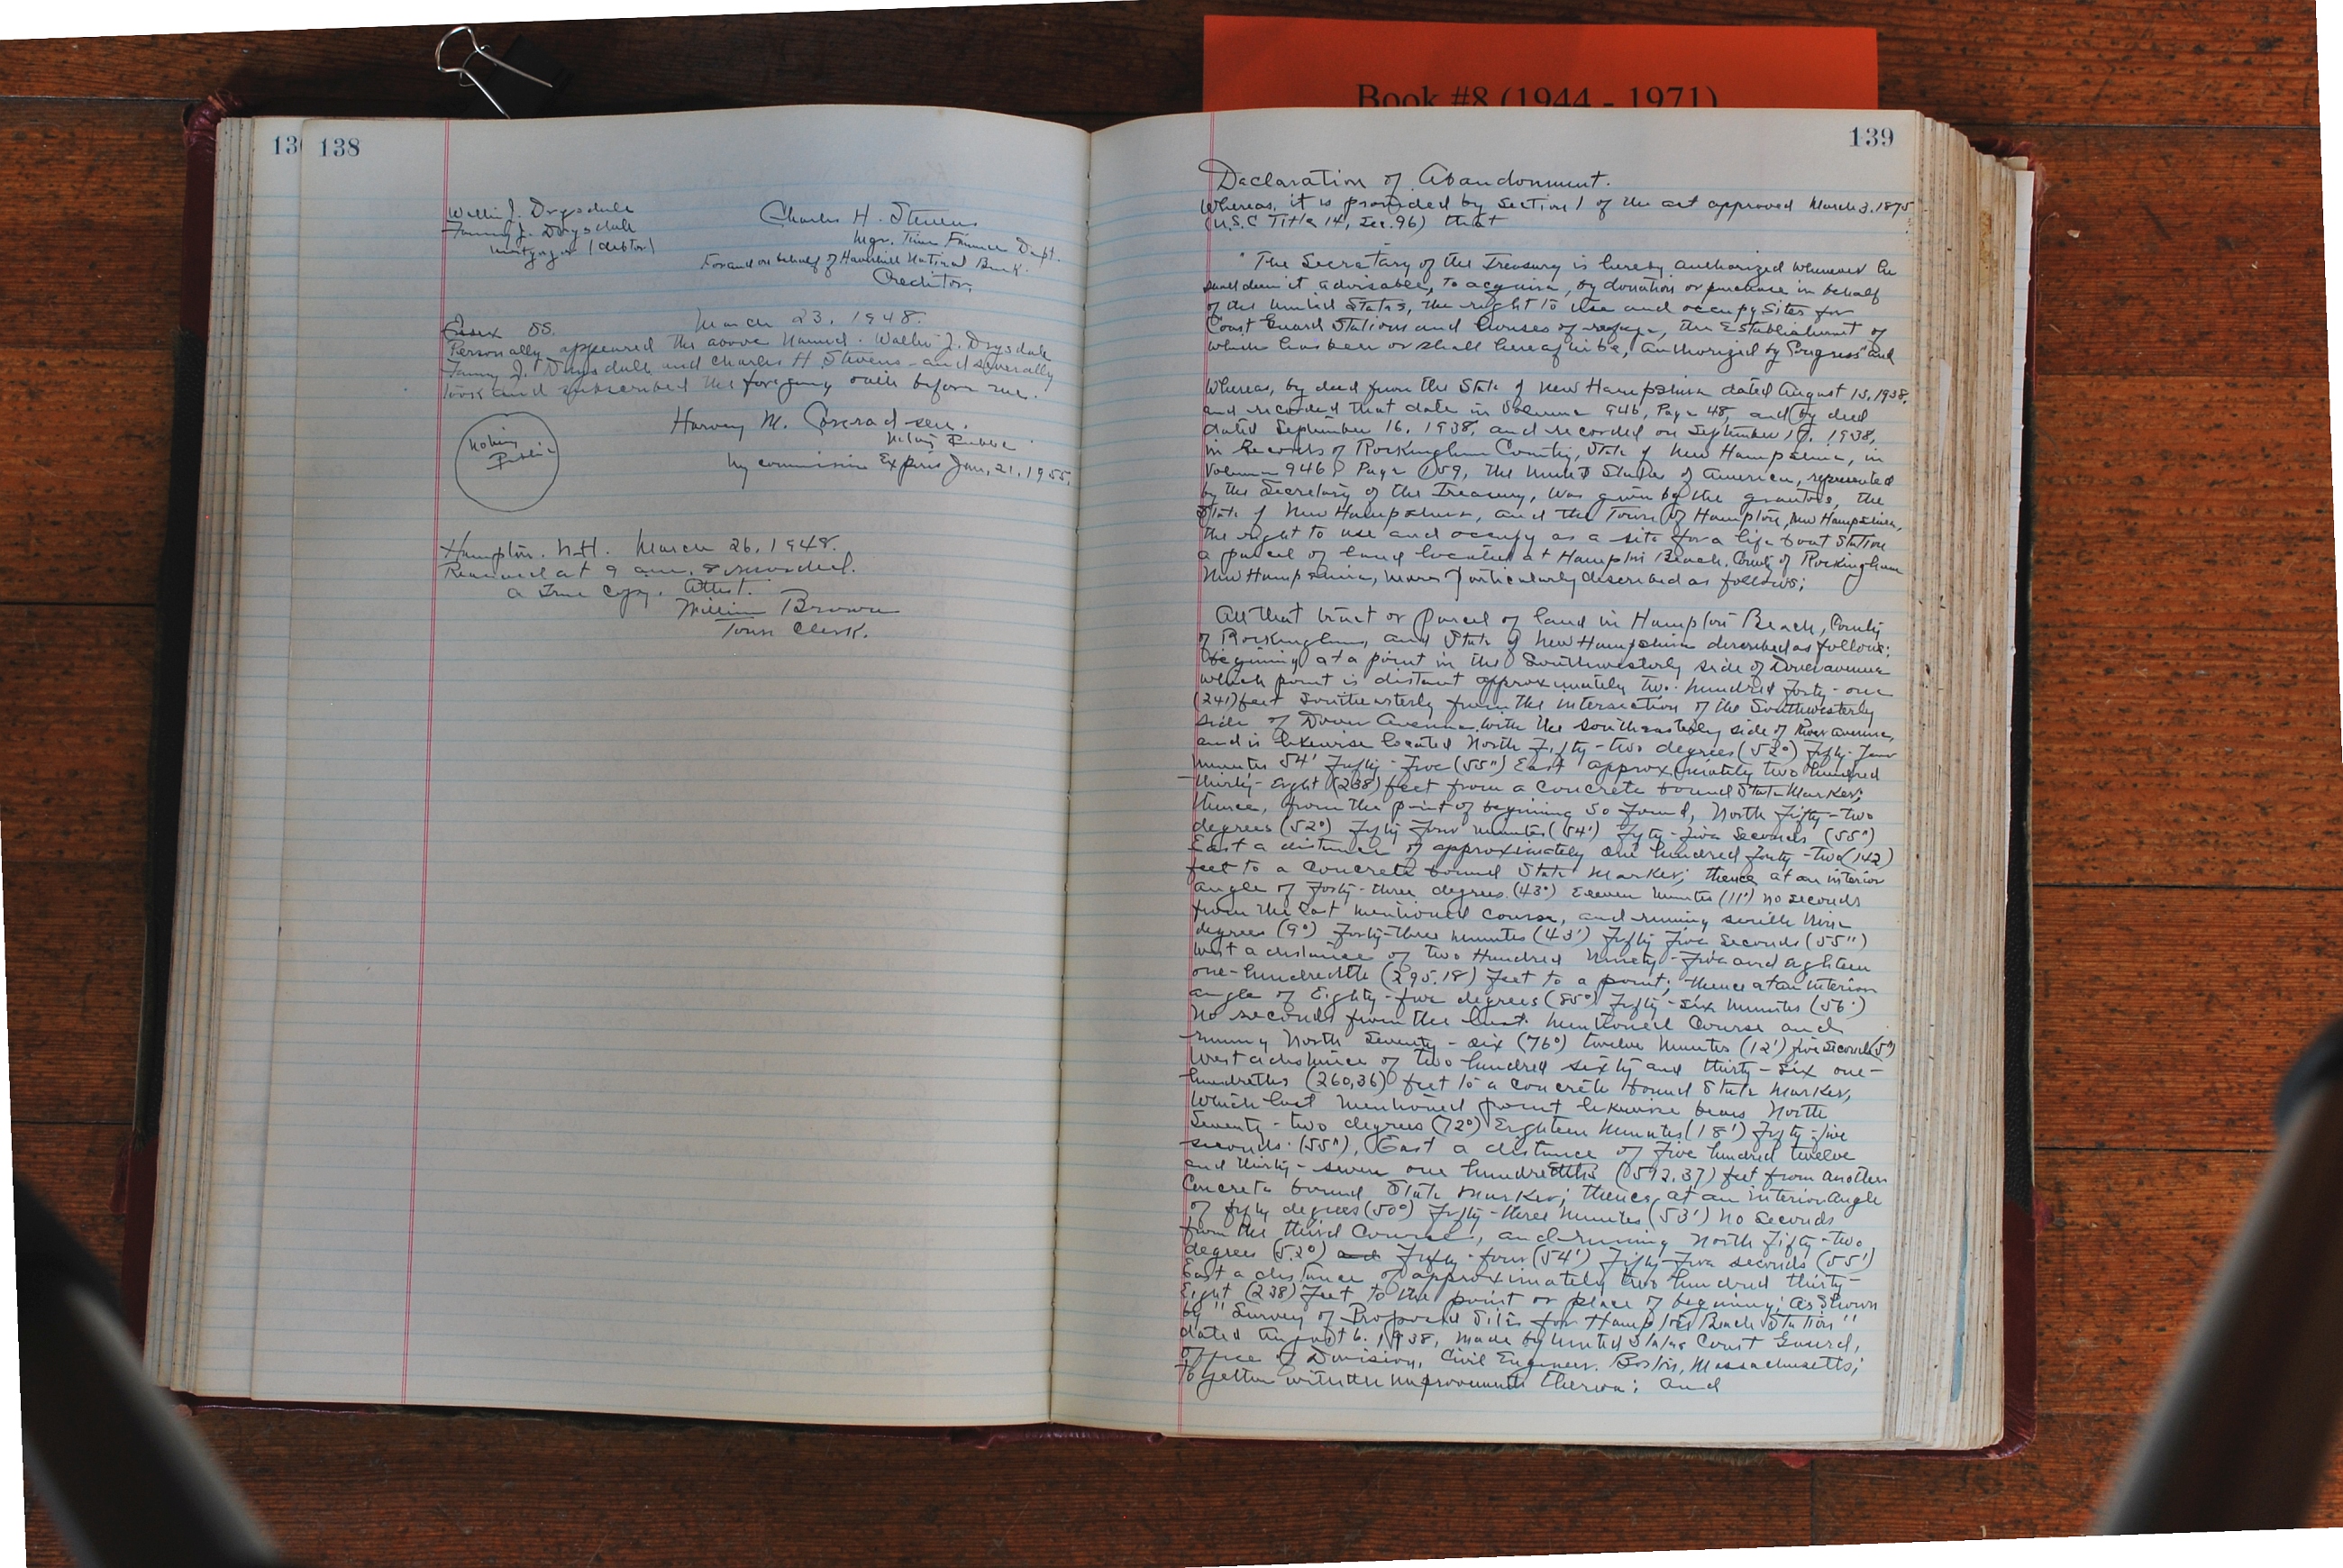 Book #8 (1944 - 1971)
13
138
Wallis J. Drysdale
Fanny J. Drysdale
mortgagor (debtor)
Charles H. Stevens
Mgr. Time Finance Dept.
For and on behalf of Haverhill National Bank.
Creditor.
Essex SS. March 23, 1948.
Personally appeared the above named. Wallis J. Drysdale
Fanny J. Drysdale and Charles H. Stevens and severally
took and subscribed the foregoing oath before me.
Notary
Public
Harvey M.
Notary Public
My commission Expires Jan. 21, 1955.
Hampton. N.H. March 26, 1948.
Received at 9 a.m. & recorded.
a True Copy. Attest.
William Brown
Town Clerk.
139
Declaration of Abandonment.
Whereas, it is provided by Section 1 of the act approved March 3. 1875
(U.S.C Title 14, Sec. 96) that
"The Secretary of the Treasury is hereby authorized whenever he
shall deem it advisable, to acquire, by donation or purchase in behalf
of the United States, the right to use and occupy Sites for
Coast Guard Stations and houses of refuge, the Establishment of
which has been or shall hereafter be, authorized by Congress" and
Whereas, by deed from the State of New Hampshire dated August 15, 1938,
and recorded that date in Volume 946, Page 48, and by deed
dated September 16. 1938, and recorded on September 17. 1938,
in Records of Rockingham County, State of New Hampshire, in
Volume 946 Page 159, the United States of America, represented
by the Secretary of the Treasury, was given by the grantors, the
State of New Hampshire, and the Town of Hampton, New Hampshire,
the right to use and occupy as a site for a life boat Station
a parcel of land located at Hampton Beach, County of Rockingham
New Hampshire, more particularly described as follows;
All that tract or parcel of land in Hampton Beach, County
of Rockingham, and State of New Hampshire described as follows;
beginning at a point in the Southwesterly side of Dover avenue
which point is distant approximately two hundred forty-one
(241) feet Southeasterly from the intersection of the Southwesterly
side of Dover Avenue with the southeasterly side of River avenue,
and is likewise located North Fifty-two degrees (52°) fifty-four
minutes 54' Fifty-Five (55") East approximately two hundred
thirty-Eight (238) feet from a concrete bound State Marker;
thence, from the point of beginning so found, North Fifty-two
degrees (52°) Fifty Four minutes (54') fifty-five Seconds (55")
East a distance of approximately one hundred forty-two (142)
feet to a concrete bound State Marker; thence at an interior
angle of forty-three degrees (43°) Eleven minutes (11') no seconds
from the last mentioned course, and running south Nine
degrees (9°) Forty-three minutes (43') Fifty Five Seconds (55")
West a distance of two Hundred Ninety-Five and eighteen
one-hundredths (295.18) feet to a point; thence at an interior
angle of Eighty-five degrees (85°) Fifty-six minutes (56')
No seconds from the last mentioned Course and
running North Seventy-six (76°) twelve minutes (12') five Seconds (5")
West a distance of two hundred sixty and thirty-six one-
hundreths (260,36) feet to a concrete bound State Marker,
Which last mentioned point likewise bears North
Seventy-two degrees (72°) Eighteen Minutes (18') Fifty-five
seconds (55"), East a distance of Five hundred twelve
and thirty-seven one hundredths feet from another
Concrete bound State Marker; thence, at an interior angle
of fifty degrees (50°) Fifty-three minutes (53') No Seconds
from the third Course, and running North Fifty-two
degrees (52°) and Fifty-four (54') Fifty-Five seconds (55')
East a distance of approximately two hundred thirty-
Eight (238) Feet to the point or place of beginning; as shown
by "Survey of Proposed Site for Hampton Beach Station"
dated August 6. 1938, made by United States Coast Guard,
Office of Division, Civil Engineer. Boston, Massachusetts;
together with the improvements thereon; and